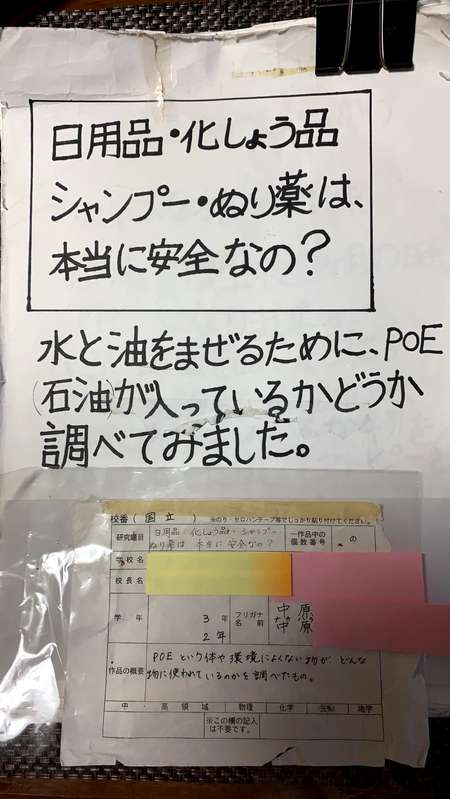 日用品・化しょう品
シャンプー・ぬり薬は、
本当に安全なの?
水と油をまぜるために、POE
(石油)が入っているかどうか
調べてみました。
校番(国立) ※のり・セロハンテープ等でしっかり貼り付けてください。
研究題目 日用品・化しょう品・シャンプー
ぬり薬は 本当に安全なの?
一作品中の
個数番号 の
学校名
校長名
学年 3年
2年
フリガナ
名前 中原
中原
作品の概要 POEという体や環境によくない物が どんな
物に使われているのかを調べたもの。
中・高領域 物理 化学 生物 地学
※この欄の記入
は不要です。